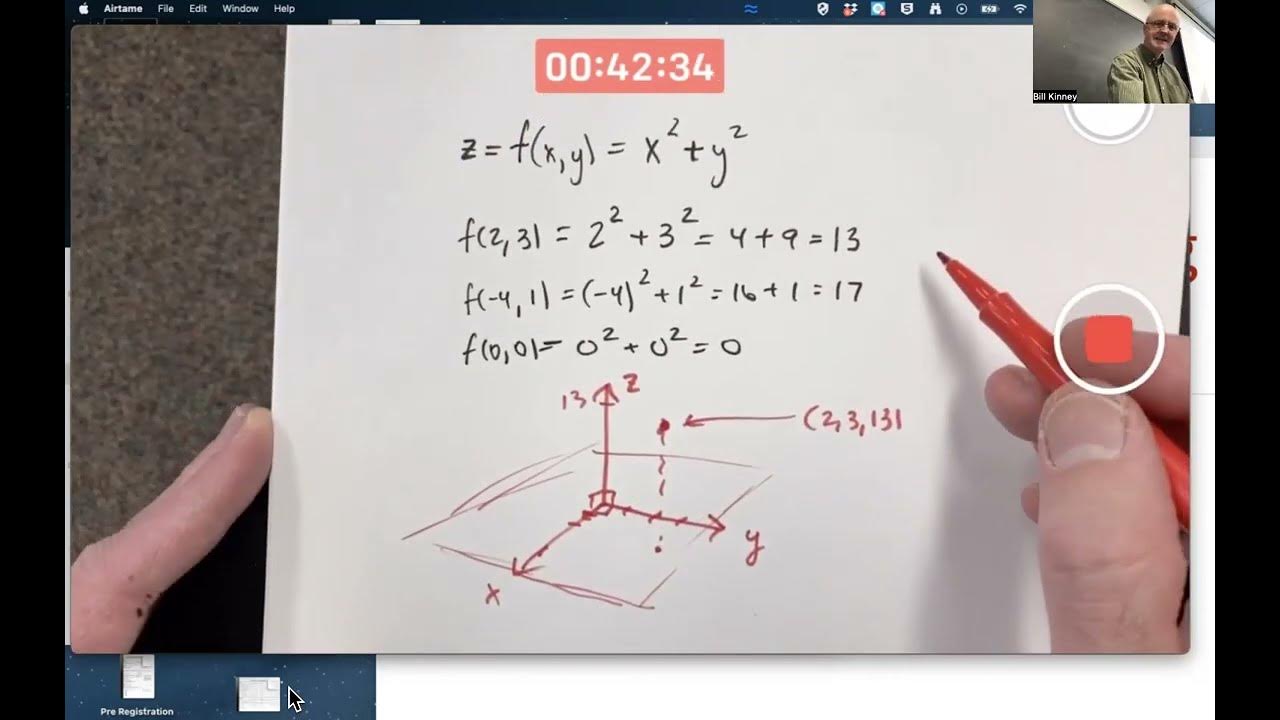 Airtame File Edit View Window Help
Bill Kinney
00:42:34
z = f(x,y) = x² + y²
f(2,3) = 2² + 3² = 4 + 9 = 13
f(-4,1) = (-4)² + 1² = 16 + 1 = 17
f(0,0) = 0² + 0² = 0
13 z
(2,3,13)
y
x
Pre Registration